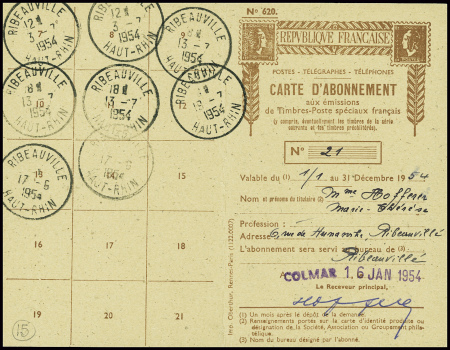 RIBEAUVILLE
12H
3 - 7
1954
HAUT-RHIN
RIBEAUVILLE
12H
13 - 7
1954
HAUT-RHIN
RIBEAUVILLE
13 - 7
1954
HAUT-RHIN
RIBEAUVILLE
18H
13 - 7
1954
HAUT-RHIN
RIBEAUVILLE
18H
13 - 7
1954
HAUT-RHIN
RIBEAUVILLE
1954
HAUT-RHIN
RIBEAUVILLE
17 - 6
1954
HAUT-RHIN
17 - 6
HAUT-RHIN
16
17
18
19
20
21
15
Imp. Oberthur, Rennes-Paris (1122-0007)
N° 620.
RÉPVBLIQVE FRANCAISE
POSTES - TÉLÉGRAPHES - TÉLÉPHONES
CARTE D'ABONNEMENT
aux émissions
de Timbres-Poste spéciaux français
(y compris, éventuellement les timbres de la série
courante et les timbres préoblitérés).
N° 21
Valable du (1) 1/1 au 31 Décembre 1954
Nom et prénoms du titulaire (2) Mme
Marie-Thérèse
Profession :
Adresse Ribeauvillé
L'abonnement sera servi au bureau de (3)
Ribeauvillé
A COLMAR 16 JAN 1954
Le Receveur principal,
(1) Un mois après le dépôt de la demande.
(2) Renseignements portés sur la carte d'identité produite ou
désignation de la Société, Association ou Groupement philatélique.
(3) Nom du bureau désigné par l'abonné.